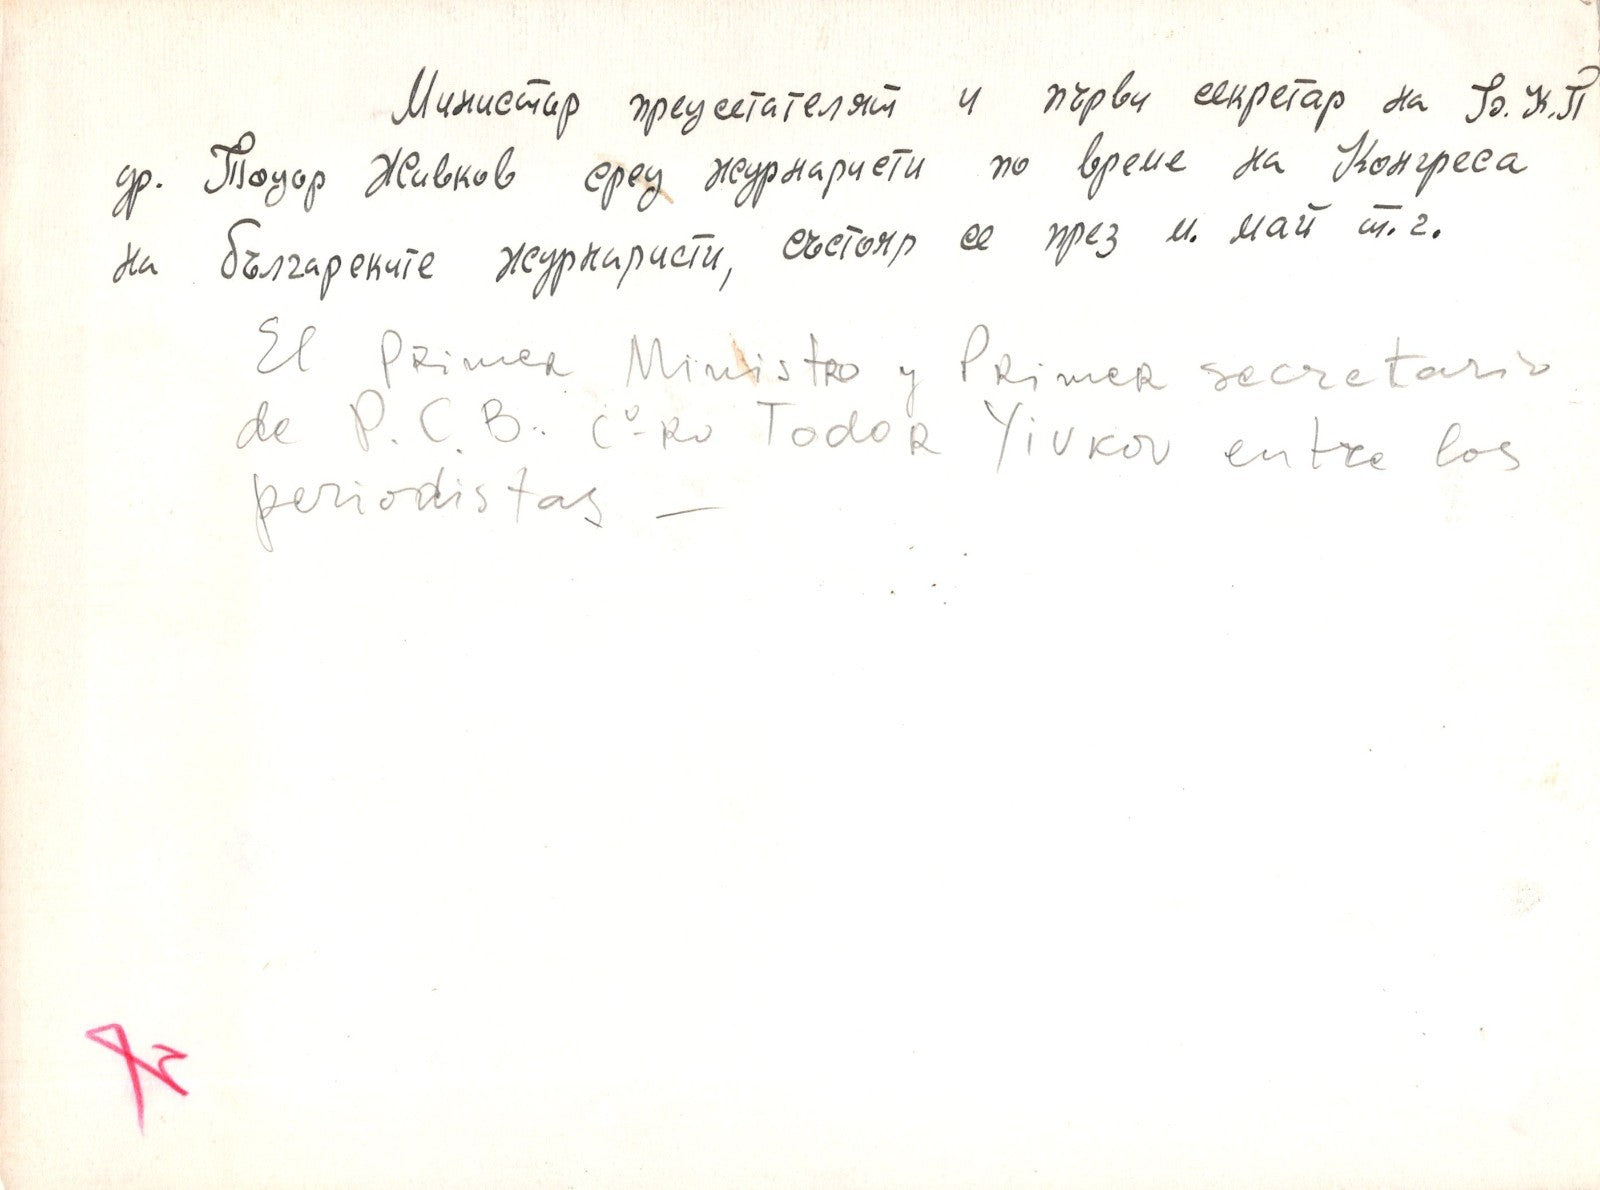 Министър председателят и първи секретар на Б.К.П
др. Тодор Живков сред журналисти по време на Конгреса
на българските журналисти, състоял се през м. май т.г.
El primer Ministro y Primer secretario
de P.C.B. Cº-ro Todor Yivkov entre los
periodistas —